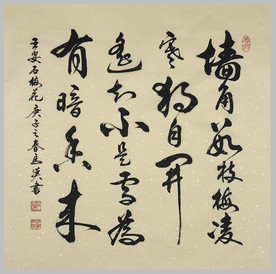 墙角数枝梅凌
寒独自开
遥知不是雪为
有暗香来
王安石梅花庚子之春马汉书